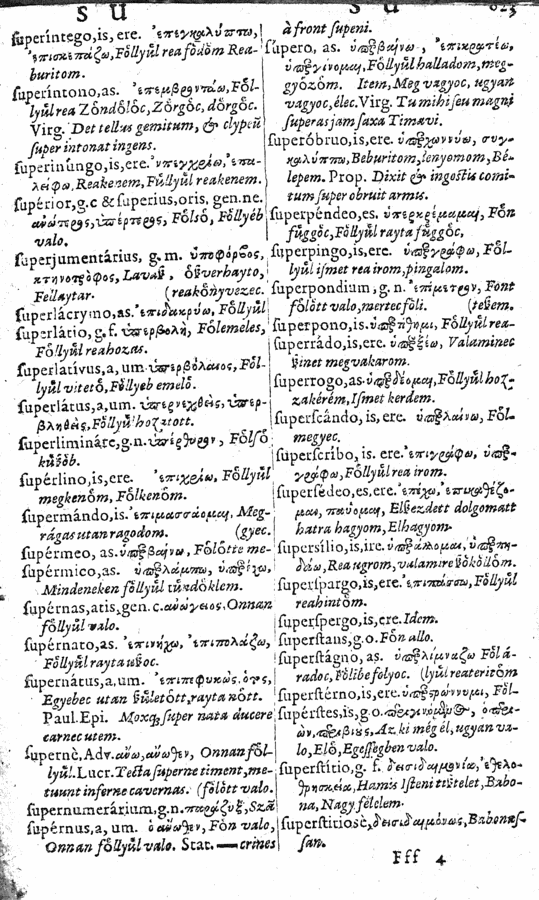 S U
superíntego,is, ere. ἐπεγκαλύπτω,
ἐπισκεπάζω, Fôllyúl rea fôdôm Rea-
buritom.
superíntono,as. ἐπεμβροντάω, Fôl-
lyúl rea Zôndôlôc, Zôrgôc, dôrgôc.
Virg. Det tellus gemitum, & clypeũ
super intonat ingens.
superinúngo,is,ere. ὑπεγχρίω, ἐπα-
λείφω, Reakenem, Fúllyúl reakenem.
supérior, g.c & superius,oris, gen.ne.
ἀνώτερος, ὑπέρτερος, Fôlsô, Fôllyéb
valo.
superjumentárius, g. m. ὑποφόρτιος,
κτηνοτρόφος, Lavaſ,
Fellaytar. (reakônyvezec.
superlácrymo, as. ἐπιδακρύω, Fôllyúl
superlátio, g.f. ὑπερβολὴ, Fôlemeles,
Fôllyúl reahozas.
superlatívus,a,um ὑπερβόλαιος, Fôl-
lyúl vitetô, Fôllyéb emelô.
superlátus,a,um. ὑπερνεχθεὶς, ὑπερ-
βληθεὶς, Fôllyúl hozatott.
superlimináre, g.n. ὑπέρθυρον, Fôlsô
kúſôb.
supérlino,is,ere. ἐπιχρίω, Fôllyúl
megkenôm, Fôlkenôm.
supermándo,is. ἐπιμασσάομαι, Meg-
rágas utan ragodom. (gyec.
supérmeo, as. ὑπερβαίνω, Fôlôtte me-
supérmico, as. ὑπερλάμπω, ὑπερέχω,
Mindeneken fôllyúl túndôklem.
supérnas,atis, gen. c. ἀνώγειος, Onnan
fôllyúl valo.
supérnato, as. ἐπινήχω, ἐπιπολάζω,
Fôllyúl rayta uſoc.
supernátus, a,um. ἐπιπεφυκὼς, ότος,
Egyebec utan ſúletôtt, rayta nôtt.
Paul. Epi. Moxq; super nata ducere
carnec utem.
supernè, Adv. ἄνω, ἄνωθεν, Onnan fôl-
lyúl. Lucr. Tecta superne timent, me-
tuunt inferne cavernas. (fôlôtt valo.
supernumerárium, g.n.
supérnus,a, um. ὁ ἄνωθεν, Fôn valo,
Onnan fôllyúl valo. Stat. — crines
S U
à front supeni.
súpero, as. ὑπερβαίνω, ἐπικρατέω,
ὑπεργίνομαι, Fôllyúl halladom, meg-
gyôzôm. Item, Meg vagyoc, ugyan
vagyoc, élec. Virg. Tu mihi seu magni
superas jam saxa Timavi.
superóbruo,is, ere. ὑπερχωννύω, συγ-
καλύπτω, Beburitom, lenyomom, Bé-
lepem. Prop. Dixit & ingestis comi-
tum super obruit armis.
superpéndeo,es. ὑπερκρέμαμαι, Fôn
fúggôc, Fôllyúl rayta fúggôc.
superpingo,is, ere. ὑπεργράφω, Fôl-
lyúl ismet rea irom, pingalom.
superpondium, g. n. ἐπίμετρον, Font
fôlôtt valo, mertec fôli. (teſem.
superpono,is. ὑπερτίθημι, Fôllyúl rea-
superrádo,is,ere. ὑπερξέω, Valaminec
ſinet megvakarom.
superrogo, as. ὑπερδέομαι, Fôllyúl hoz-
zakérém, Ismet kerdem.
superscándo, is, ere. ὑπερλαίνω, Fôl-
megyec.
superscribo, is, ere. ἐπιγράφω, ὑπερ-
γράφω, Fôllyúl rea irom.
supersédeo,es,ere. ἐπέχω, ἐπικαθέζο-
μαι, παύομαι, Elkezdett dolgomatt
hatra hagyom, Elhagyom.
supersílio,is,ire. ὑπεράλλομαι, ὑπερπη-
δάω, Rea ugrom, valamire ſôkôllôm.
superspargo,is,ere. ἐπιπάσσω, Fôllyúl
reahintôm.
superspergo,is,ere. Idem.
superstans, g.o. Fôn allo.
superstágno, as. ὑπερλίμναζω Fôl á-
radoc, fôlibe folyoc. (lyúl reateritôm
superstérno,is,ere. ὑπερστρώννυμι, Fôl-
supérstes,is, g.o.
Az, ki még él, ugyan va-
lo, Elô, Egessegben valo.
superstítio, g. f. δεισιδαιμονία, ἐθελο-
θρησκεία, Hamis Isteni tistelet, Babo-
na, Nagy félelem.
superstitiosè, δεισιδαιμόνως, Babonas-
san.
Fff 4